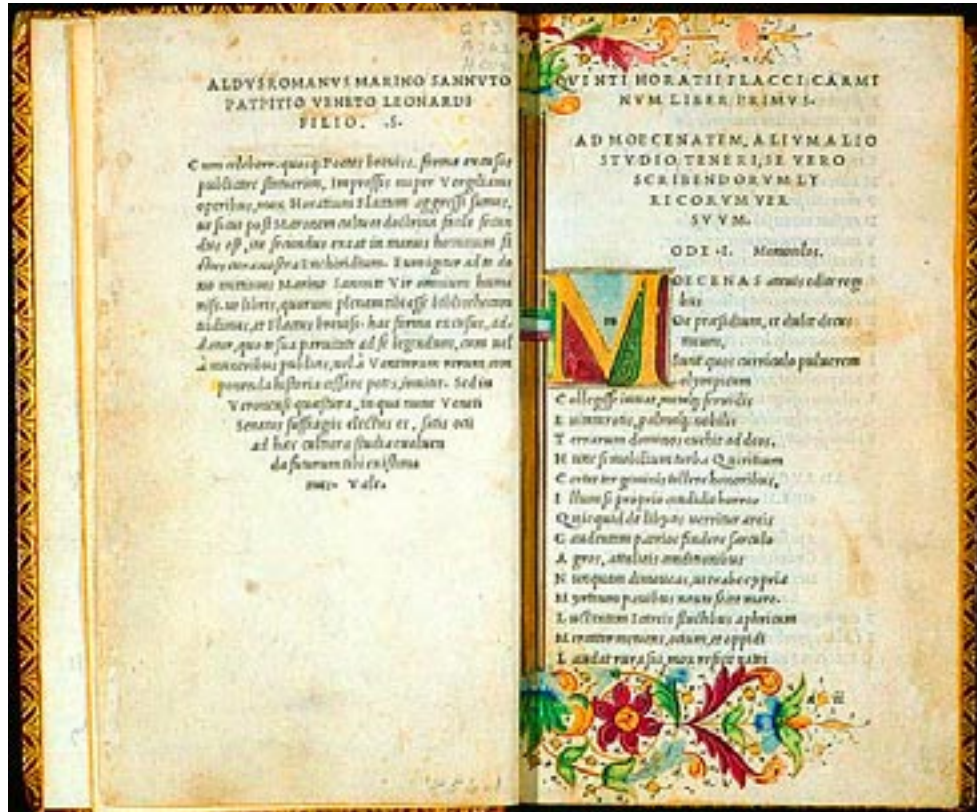 ALDVS ROMANVS MARINO SANNVTO
PATRITIO VENETO LEONARDI
FILIO. .S.
Cum celebterr. quosq; Poetas breuiss. forma excusos
publicare statuerim, Impressis nuper Vergilianis
operibus, mox Horatium Flaccum aggressi sumus,
ut sicut post Maronem cultu et doctrina facile secun
dus est, ita secundus exeat in manus hominum
cura nostra Enchiridium. Eum igitur ad te da
mittimus Marine Sannute Vir omnium huma
niss. ut libris, quorum plenam tibi esse bibliothecam
uidimus, et Flaccus breuiss. hac forma excusus, ad-
datur, quo te sua paruitate ad se legendum, cum uel
à muneribus publicis, uel à Venetarum rerum com
ponenda historia cessare potes, inuitet. Sed in
Veronensi quæstura, in qua nunc Veneti
Senatus suffragiis electus es, satis oti
ad hæc cultiora studia euoluen
da futurum tibi existima
mus. Vale.
QVINTI HORATII FLACCI CARMI
NVM LIBER PRIMVS.
AD MOECENATEM, ALIVM ALIO
STVDIO TENERI, SE VERO
SCRIBENDORVM LY
RICORVM VER
SVVM.
ODE .I. Monocolos.
MOECENAS atauis edite regi
bus
Oe præsidium, et dulce decus
meum,
Sunt quos curriculo puluerem
olympicum
Collegisse iuuat, metaq; feruidis
Euitata rotis, palmaq; nobilis
Terrarum dominos euehit ad deos.
Hunc si mobilium turba Quiritium
Certat tergeminis tollere honoribus,
Illum si proprio condidit horreo
Quicquid de libycis uerritur areis
Gaudentem patrios findere sarculo
Agros, attalicis conditionibus
Nunquam dimoueas, ut trabe cypria
Myrtoum pauidus nauta secet mare.
Luctantem Icareis fluctibus aphricum
Mercator metuens, ocium, et oppidi
Laudat rura sui, mox reficit rates
a ii